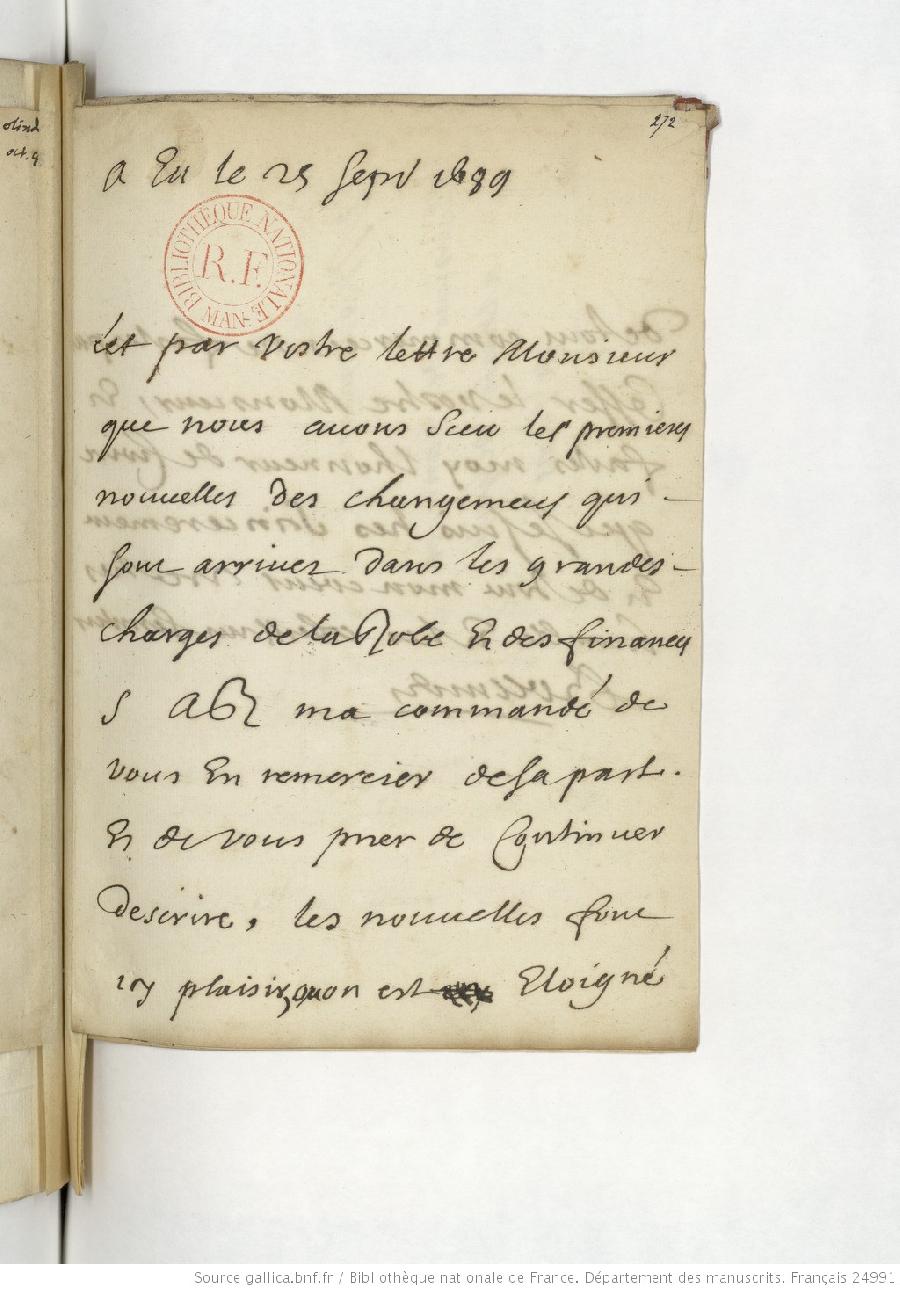 272
A Eu le 25 septr 1689
BIBLIOTHÈQUE NATIONALE
R.F.
MANS.
cet par vostre lettre Monsieur
que nous auons sceu les premieres
nouuelles des changemens qui
sont arriuez dans les grandes
charges de la Robe Et des finances
S A R ma commandé de
vous En remercier de sa part.
Et de vous prier de Continuer
descrire, les nouuelles font
icy plaisir, quon est Eloigné
Source gallica.bnf.fr / Bibliothèque nationale de France. Département des manuscrits. Français 24991